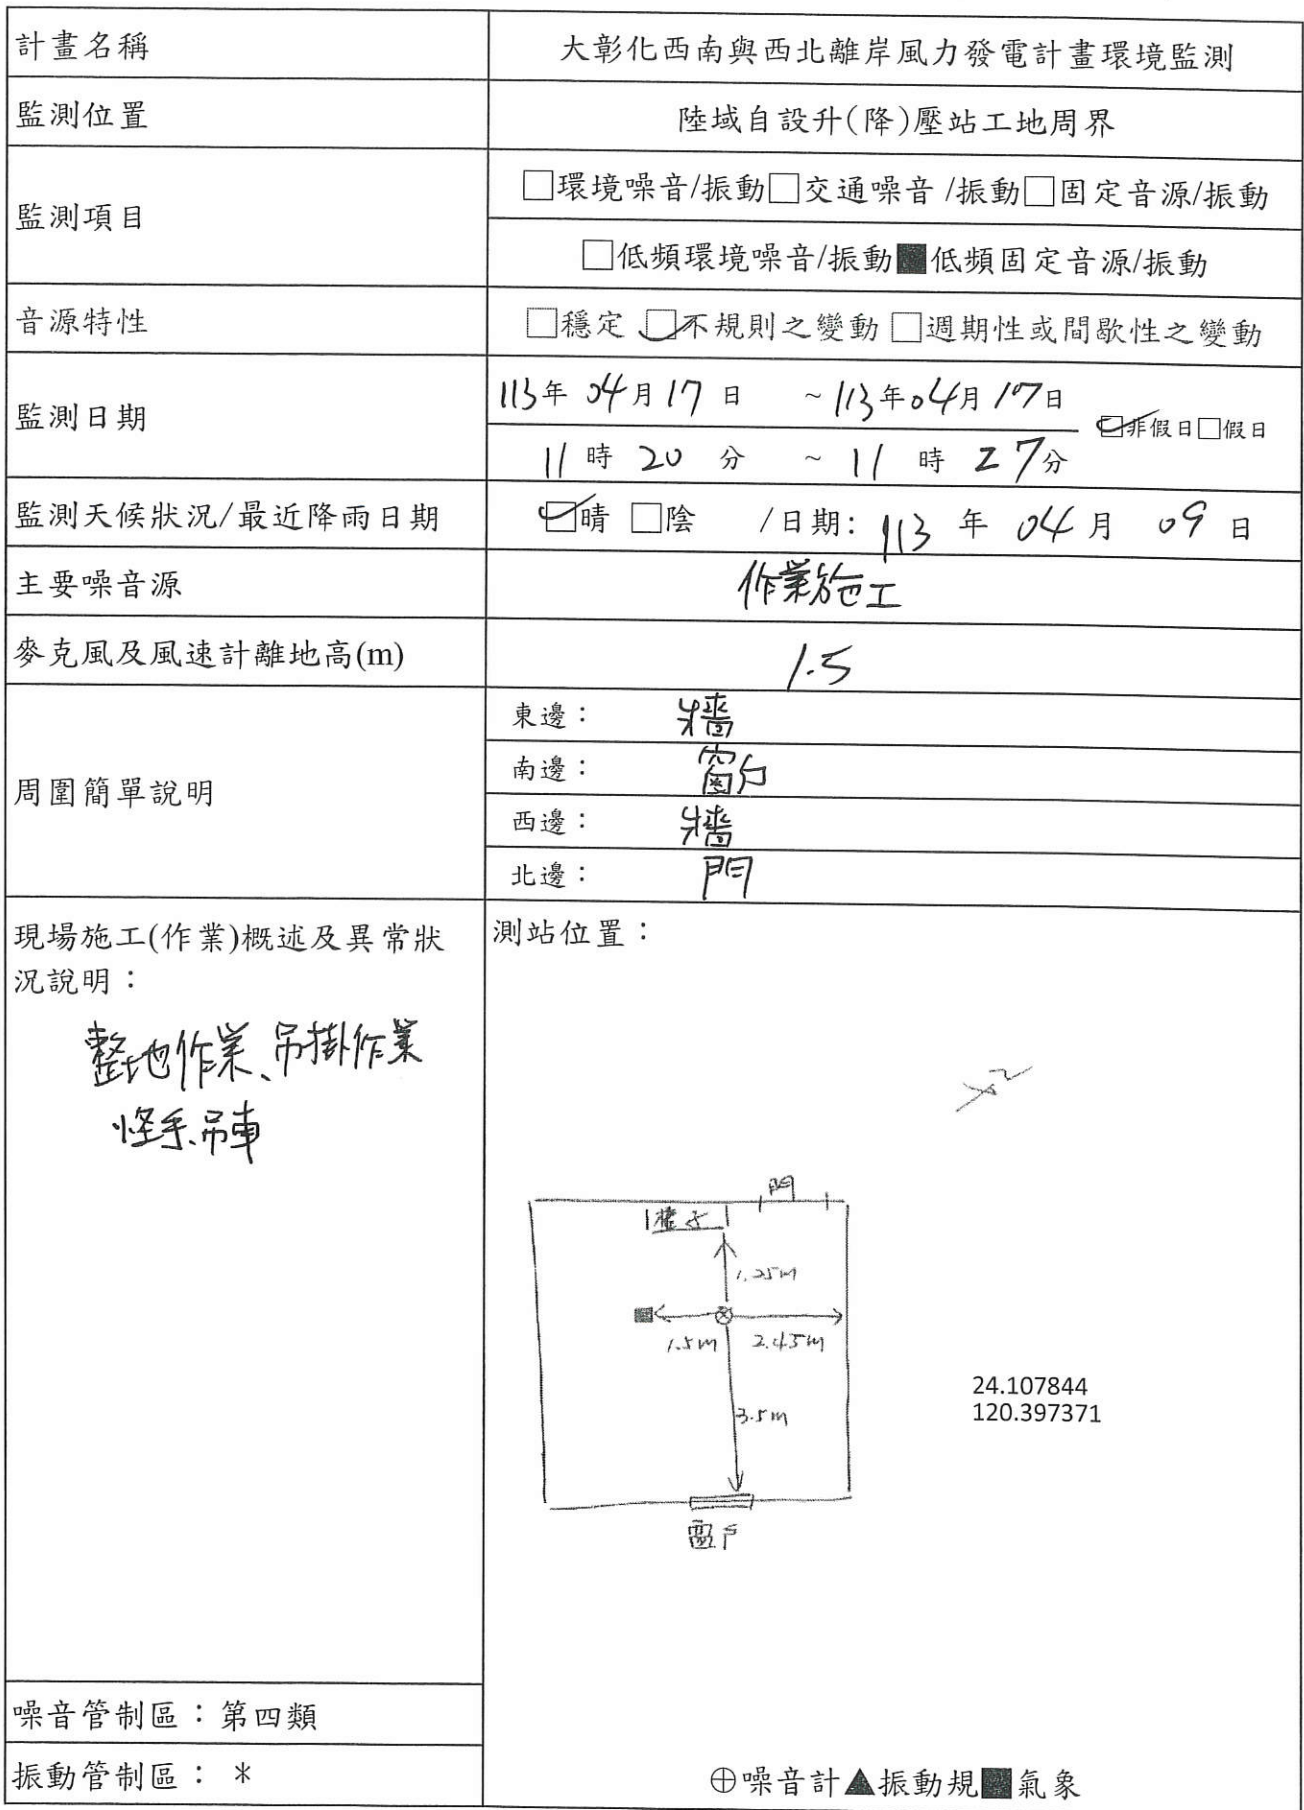 計畫名稱
大彰化西南與西北離岸風力發電計畫環境監測
監測位置
陸域自設升(降)壓站工地周界
監測項目
□環境噪音/振動□交通噪音 /振動□固定音源/振動
□低頻環境噪音/振動■低頻固定音源/振動
音源特性
□穩定 ☑不規則之變動 □週期性或間歇性之變動
監測日期
113年 04月 17 日 ~ 113年 04月 17日
☑非假日□假日
11 時 20 分 ~ 11 時 27分
監測天候狀況/最近降雨日期
☑晴 □陰 /日期: 113 年 04 月 09 日
主要噪音源
作業施工
麥克風及風速計離地高(m)
1.5
周圍簡單說明
東邊： 牆
南邊： 窗戶
西邊： 牆
北邊： 門
現場施工(作業)概述及異常狀
況說明：
整地作業、吊掛作業
怪手、吊車
測站位置：
門
櫃子
1.25m
1.5m 2.45m
3.5m
窗戶
24.107844
120.397371
噪音管制區：第四類
振動管制區： *
⊕噪音計▲振動規■氣象